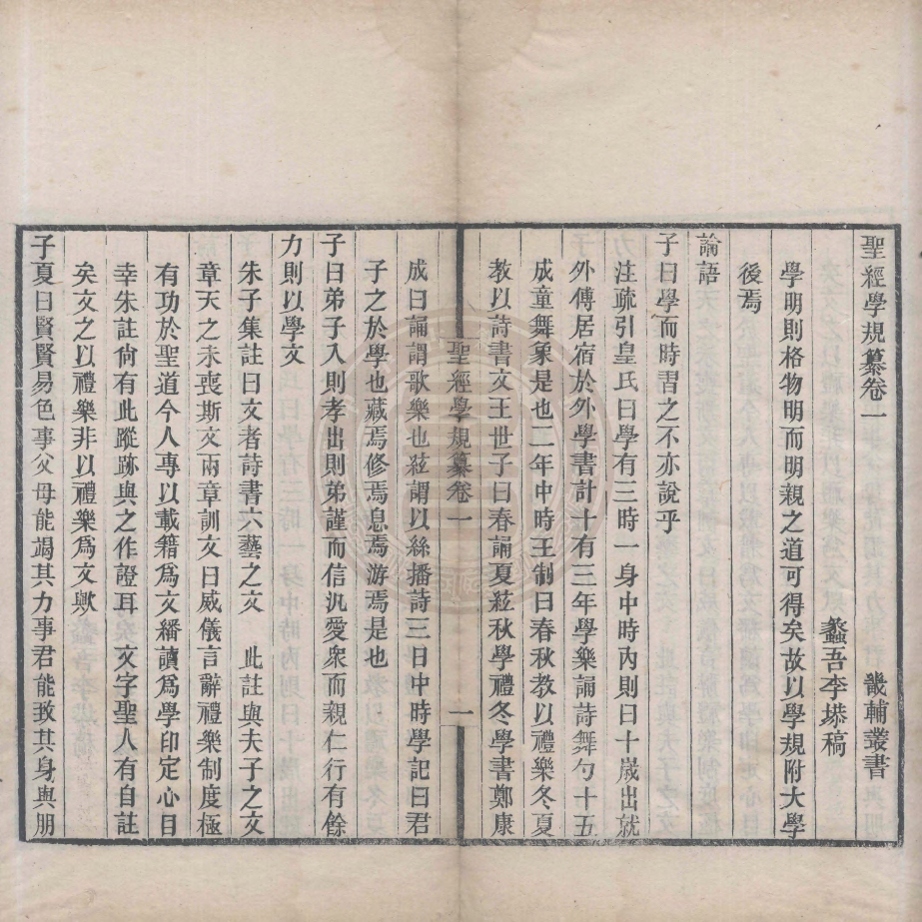 聖經學規纂卷一　畿輔叢書
蠡吾李塨稿
學明則格物明而明親之道可得矣故以學規附大學
後焉
論語
子曰學而時習之不亦說乎
注疏引皇氏曰學有三時一身中時內則曰十歲出就
外傅居宿於外學書計十有三年學樂誦詩舞勺十五
成童舞象是也二年中時王制曰春秋教以禮樂冬夏
教以詩書文王世子曰春誦夏絃秋學禮冬學書鄭康
聖經學規纂卷一　一
成曰誦謂歌樂也絃謂以絲播詩三日中時學記曰君
子之於學也藏焉修焉息焉游焉是也
子曰弟子入則孝出則弟謹而信汎愛衆而親仁行有餘
力則以學文
朱子集註曰文者詩書六藝之文　此註與夫子之文
章天之未喪斯文兩章訓文曰威儀言辭禮樂制度極
有功於聖道今人專以載籍爲文繙讀爲學印定心目
幸朱註尙有此蹤跡與之作證耳　文字聖人有自註
矣文之以禮樂非以禮樂爲文歟
子夏曰賢賢易色事父母能竭其力事君能致其身與朋